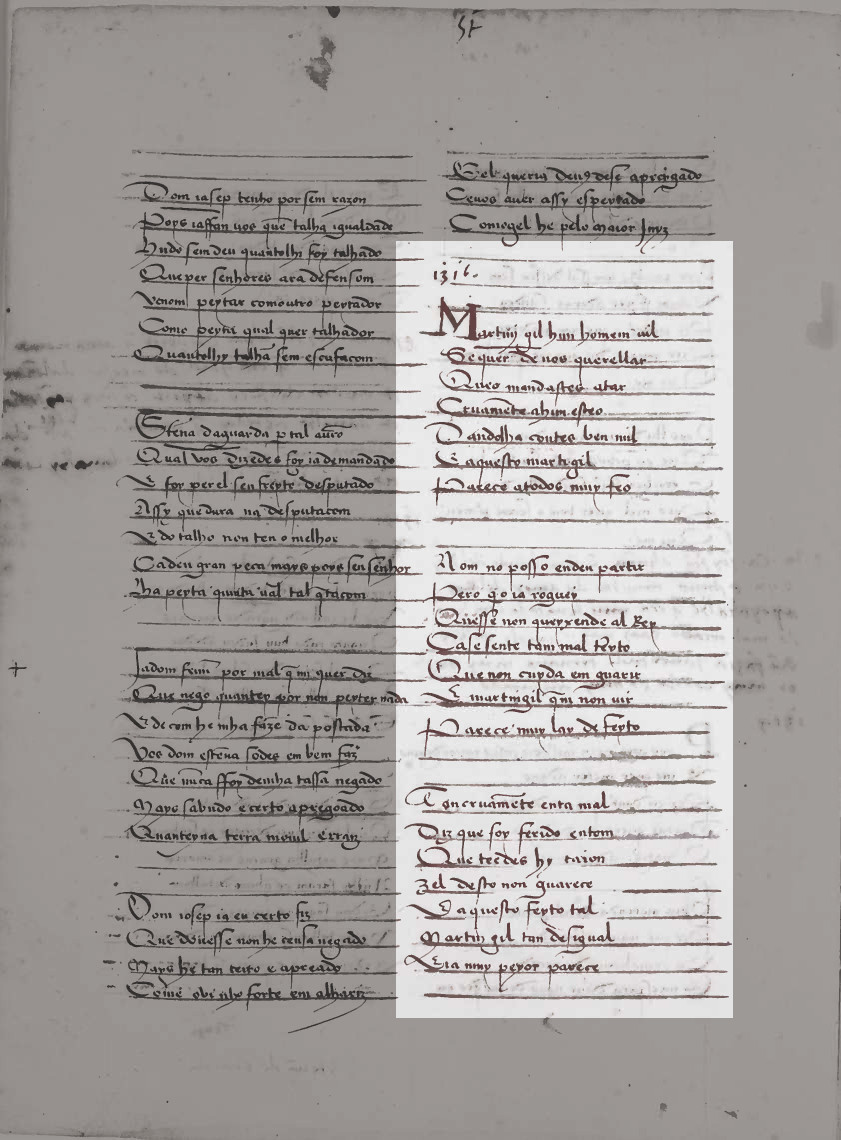 Dom iasep tenho por sem razon
Poys iaffan vos que talha igualdade
Hudo sem deu quantolhi foy talhado
Que per senhores ara defensom
Venom peytar como outro peytador
Como peyta qual quer talhador
Quantolhy talhã sem escusacom
Steuã daguarda p tal auto
Qual vos dizedes foy ia demandado
E foy per el seu feyto desputado
Assy que dura na desputacom
E do talho non ten o melhor
Ca deu gran peca mays poys seu senhor
lha peyta quita ual tal
Ia dom por mal q̃ mi quer diz
Que nego quantey por non peyter nada
E de com he mha faze da postada
Vos dom esteuã sodes em bem faz
Que nũca ffoy demha tassa negado
Mays sabudo e certo apregoado
Quantey na terra movil e rraiz
Dom iosep ia eu certo fiz
Que douesse non he cousa negado
Mays he tan teito e apreado
Come ovi forte em alhariz
El queria deu9 dese apregado
Ceuos auer assy espeytado
Como gel he pelo maior Juyz
1316.
Martin gil hun homem vil
Se quer de uos querellar
Que o mandastes atar
Cruamẽte ahun esteo
Dandolha coutes ben mil
E aquesto martigil
Parece atodos muy feo
Nom no posso end eu partir
Pero q̃ o ia roguey
Quesse non queyxende al Rey
Ca se sente tam mal feyto
Que non cuyda em guarir
E martingil q̃m non vir
Parece muy lay de feyto
Ton cruamẽte enta mal
Diz que foy ferido entom
Que teedes hy caiom
Zel desto non guarece
E aquesto feyto tal
Martin gil tan desigual
E ia muy peyor parece